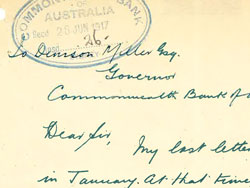 COMMONWEALTH BANK
OF
AUSTRALIA
Recd 25 JUN 1917
26
To Denison Miller Esq.
Governor
Commonwealth Bank of
Dear Sir,
My last letter
in January. At that time